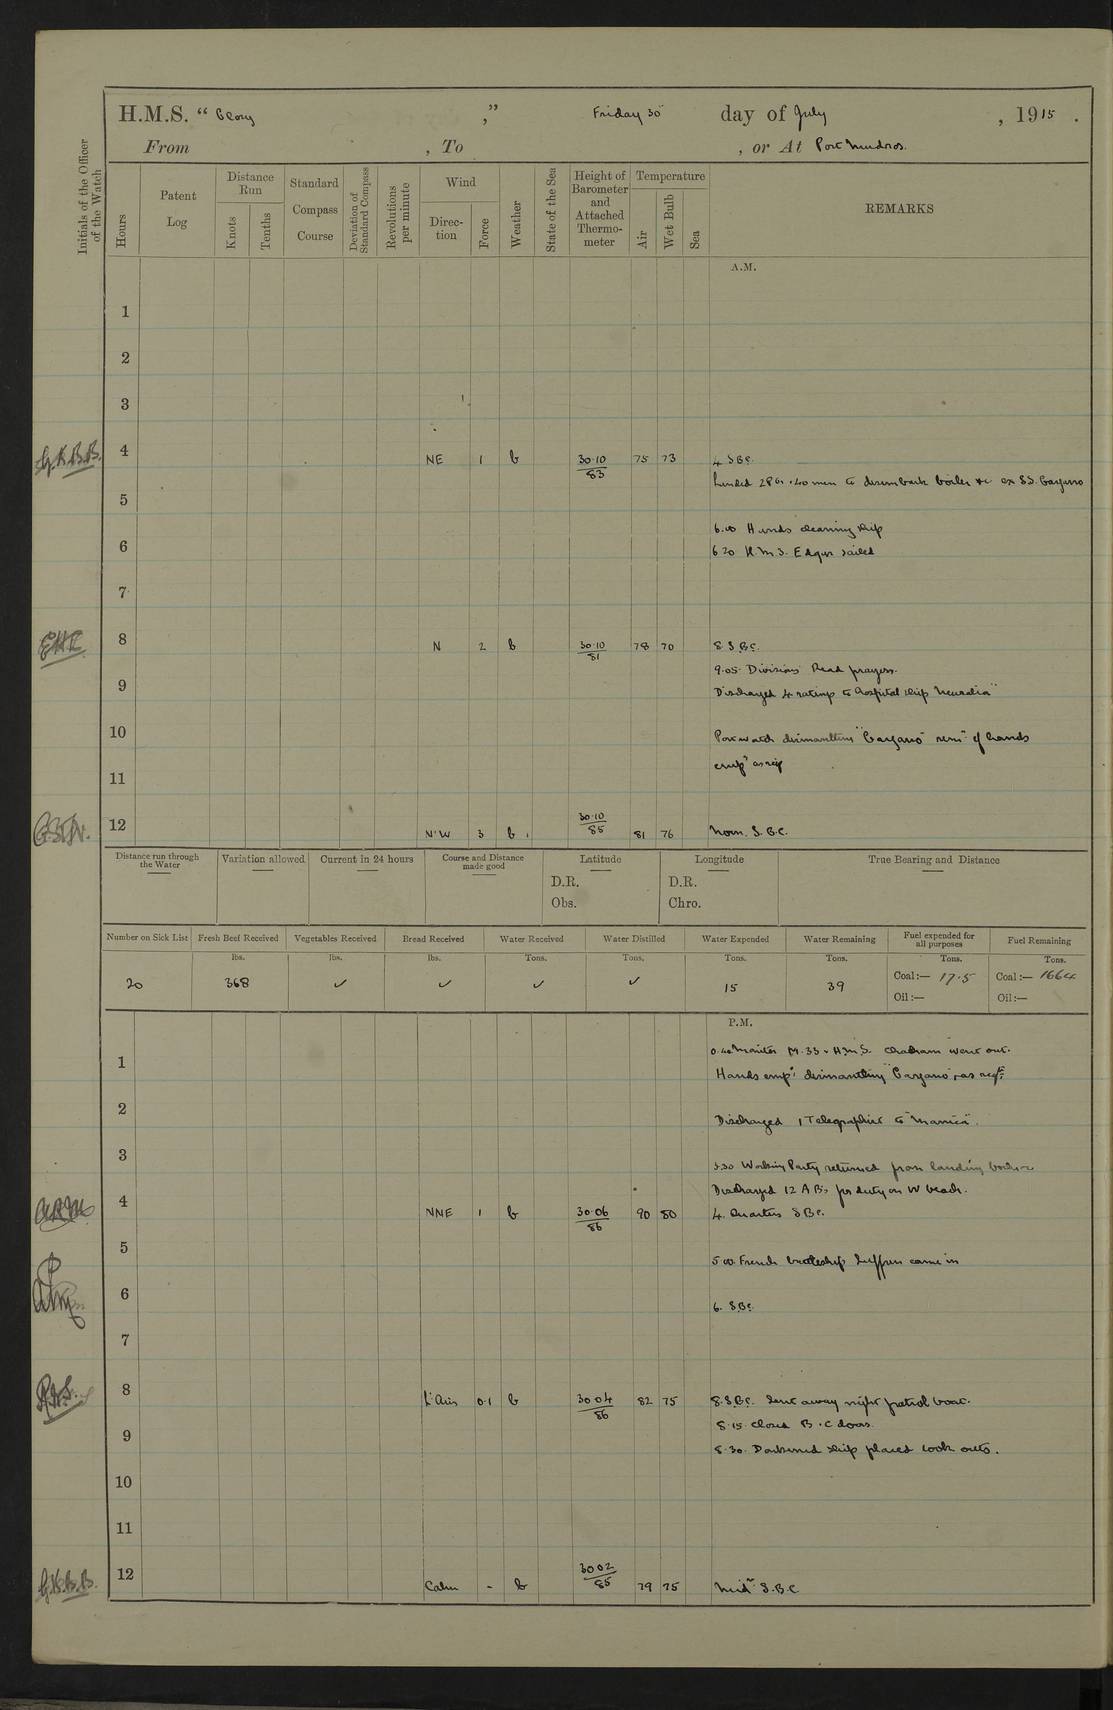 H.M.S. “ Glory ,” Friday 30 day of July , 1915 .
From , To , or At Port Mudros.
Initials of the Officer of the Watch
Hours
Patent Log
Distance Run
Knots
Tenths
Standard Compass Course
Deviation of Standard Compass
Revolutions per minute
Wind
Direction
Force
Weather
State of the Sea
Height of Barometer and Attached Thermometer
Temperature
Air
Wet Bulb
Sea
REMARKS
A.M.
1
2
3
G.K.B.B. 4 NE 1 b 30·10 83 75 73 4 SBC.
Landed 40 men to disembark boiler &c ex SS. Gargano
5
6.00 Hands cleaning ship
6
6 20 H.M.S. Edgar sailed
7
8 N 2 b 30·10 81 78 70 8 S.BC.
9.05. Divisions Read prayers.
9
Discharged 4 ratings to hospital ship Neuralia"
10
Port watch dismantling "Gargano" rem^g of hands
emp^d as req
11
12 N'W 3 b 30·10 85 81 76 Noon. S.B.C.
Distance run through the Water
Variation allowed
Current in 24 hours
Course and Distance made good
Latitude
D.R.
Obs.
Longitude
D.R.
Chro.
True Bearing and Distance
Number on Sick List
Fresh Beef Received
Vegetables Received
Bread Received
Water Received
Water Distilled
Water Expended
Water Remaining
Fuel expended for all purposes
Fuel Remaining
lbs. lbs. lbs. Tons. Tons. Tons. Tons. Tons. Tons.
20 368 ✓ ✓ ✓ ✓ 15 39 Coal:— 17·5 Coal:— 1664
Oil:— Oil:—
P.M.
0.40 Monitor M.33 & H.M.S. Chatham went out.
1
Hands emp^d dismantling "Gargano" & as req^d
2
Discharged 1 Telegraphist to "Manica".
3
3.30 Working Party returned from landing boiler
Discharged 12 ABs for duty on W beach.
4 NNE 1 b 30·06 86 90 80 4. Quarters SBC.
5
5 00 French battleship Suffren came in
6
6. SBC.
7
8 L^t Airs 0·1 b 30 04 86 82 75 8.S.B.C. Sent away night patrol boat.
8·15. Closed B.C doors.
9
8·30. Darkened ship placed look outs.
10
11
G.K.B.B. 12 Calm - b 30 02 85 79 75 Mid^t S.B.C